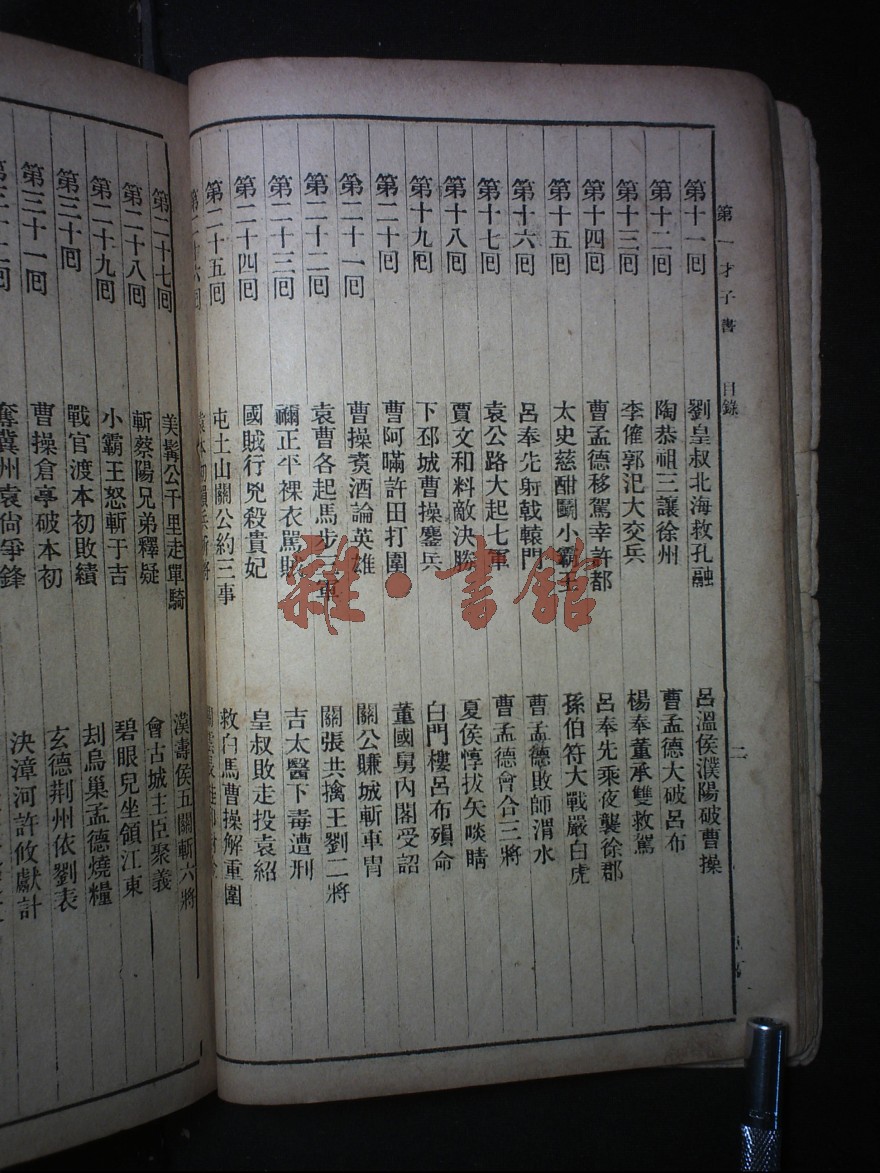 第一才子書 目錄 二
第十一回 劉皇叔北海救孔融 呂溫侯濮陽破曹操
第十二回 陶恭祖三讓徐州 曹孟德大破呂布
第十三回 李傕郭汜大交兵 楊奉董承雙救駕
第十四回 曹孟德移駕幸許都 呂奉先乘夜襲徐郡
第十五回 太史慈酣鬭小霸王 孫伯符大戰嚴白虎
第十六回 呂奉先射戟轅門 曹孟德敗師淯水
第十七回 袁公路大起七軍 曹孟德會合三將
第十八回 賈文和料敵決勝 夏侯惇拔矢啖睛
第十九回 下邳城曹操鏖兵 白門樓呂布殞命
第二十回 曹阿瞞許田打圍 董國舅內閣受詔
第二十一回 曹操煑酒論英雄 關公賺城斬車冑
第二十二回 袁曹各起馬步三軍 關張共擒王劉二將
第二十三回 禰正平裸衣罵賊 吉太醫下毒遭刑
第二十四回 國賊行兇殺貴妃 皇叔敗走投袁紹
第二十五回 屯土山關公約三事 救白馬曹操解重圍
第二十六回 袁本初
第二十七回 美髯公千里走單騎 漢壽侯五關斬六將
第二十八回 斬蔡陽兄弟釋疑 會古城主臣聚義
第二十九回 小霸王怒斬于吉 碧眼兒坐領江東
第三十回 戰官渡本初敗績 刦烏巢孟德燒糧
第三十一回 曹操倉亭破本初 玄德荆州依劉表
奪冀州袁尙爭鋒 決漳河許攸獻計
雜·書館